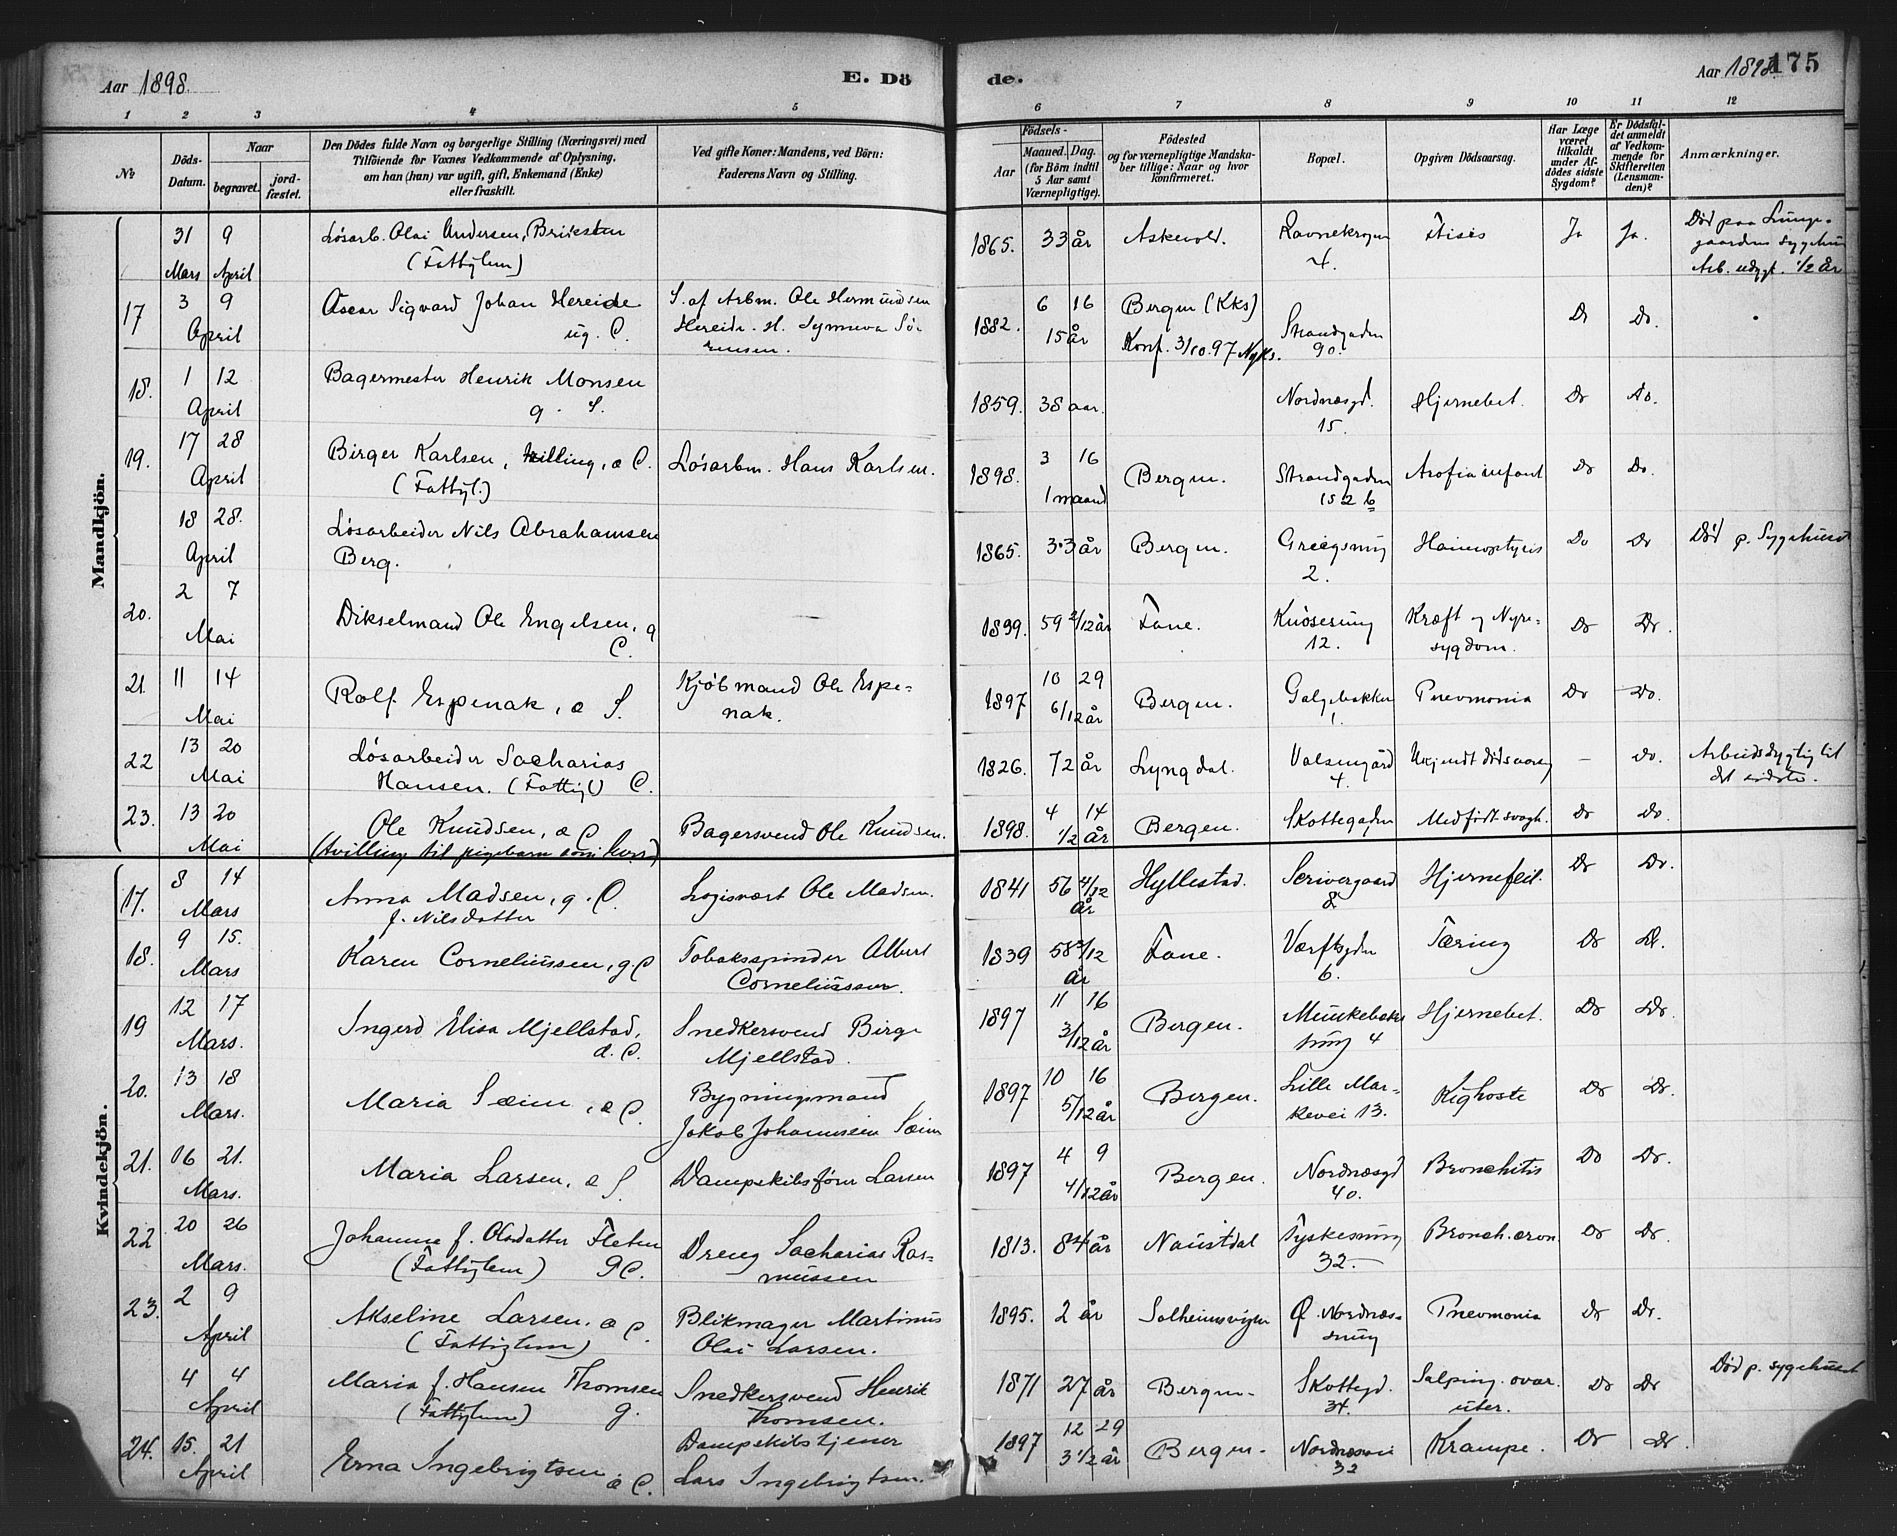 Aar 1898.
E. Dö
de.
Aar 1898.
175
1 2 3 4 5 6 7 8 9 10 11 12
No
Döds-Datum.
Naar
begravet.
jord-fæstet.
Den Dödes fulde Navn og borgerlige Stilling (Næringsvei) med
Tilföiende for Voxnes Vedkommende af Oplysning,
om han (hun) var ugift, gift, Enkemand (Enke)
eller fraskilt.
Ved gifte Koner: Mandens, ved Börn:
Faderens Navn og Stilling.
Födsels-
Aar
Maaned. Dag.
(for Börn indtil
5 Aar samt
Værnepligtige).
Födested
og for værnepligtige Mandska-
ber tillige: Naar og hvor
konfirmeret.
Bopæl.
Opgiven Dödsaarsag.
Har Læge
været
tilkaldt
under Af-
dödes sidste
Sygdom?
Er Dödsfal-
det anmeldt
af Vedkom-
mende for
Skifteretten
(Lensman-
den)?
Anmærkninger.
Mandkjön.
31 Mars 9 April Løsarb. Olai Andersen, (Fattiglem) 1865. 33 år Askevold. 4. Ja Ja. Død paa Lunge-
gaardens sygehus
Arb. udygt. 1/2 år
17 3 9 April Oscar Sigvard Johan Hereide ug. C. S. af Arbm. Ole Hermundsen
Hereide. H. Synneva Sø-
rensen.
1882. 6 16 15 år Bergen (Kks)
Konf. 3/10.97 Nyks. Strandgaden 90. Do Do.
18. 1 12 April Bagermester Henrik Monsen g. S. 1859. 38 aar. Nordnæsgd. 15. Hjernebet. Do Do.
19. 17 28 April Birger Karlsen, tvilling, a C.
(Fattigl.) Løsarbm. Hans Karlsen. 1898. 3 16 1 maaned Bergen. Strandgaden 152 b Do Do.
18 28. April Løsarbeider Nils Abrahamsen
Berg. 1865. 33 år Bergen. 2. Do Do Død p. Sygehuset
20. 2 7 Mai Dikselmand Ole Engelsen, g C. 1839. 59 2/12 år Fane. Knøsesmug 12. Kræft og Nyre-
sygdom. Do Do.
21. 11 14 Mai Rolf Espenak, a S. Kjøbmand Ole Espe-
nak. 1897 10 29 6/12 år Bergen. Galgebakken 1. Pnevmonia Do Do.
22 13 20 Mai Løsarbeider Sacharias
Hansen. (Fattigl) C. 1826. 72 år Lyngdal. 4. Ukjendt dødsaarsag – Do. Arbeidsdygtig til
det sidste.
23. 13 20 Mai Ole Knudsen, a C
(tvilling til pigebarn Bagersvend Ole Knudsen. 1898. 4 14 1/2 år Bergen. Skottegaden Medfødt svagh. Do Do.
Kvindekjön.
17. 8 14 Mars Anna Madsen, g. C.
f. Nilsdatter Logisvært Ole Madsen. 1841 56 4/12 år Hyllestad. Scrivergaard 8 Hjernefeil. Do Do.
18. 9 15. Mars Karen Corneliussen, g C Tobaksspinder Albert
Corneliussen. 1839 58 /12 år Fane. Værftsgden 6. Tæring Do Do.
19 12 17 Mars. Ingerd Elisa Mjellstad, a. C. Snedkersvend Birger
Mjellstad. 1897 11 16 3/12 år Bergen. Munkebæks
smug 4 Hjernebet. Do Do.
20. 13 18 Mars. Maria Sæim, a C. Bygningsmand
Jakob Johannesen Sæim 1897 10 16 5/12 år Bergen. Lille Mar-
kevei 13. Kighoste Do Do.
21. 16 21. Mars. Maria Larsen, a S. Dampskibsfører Larsen 1897 4 9 4/12 år Bergen. Nordnæsgd 40. Bronchitis Do Do.
22 20 26 Mars. Johanne f. Olsdatter Fleten
(Fattiglem) g C. Dreng Sacharias Ras-
mussen 1813. 84 år Naustdal Tyskesmug 32. Bronch. cron Do Do.
23. 2 9 April Akseline Larsen, a C.
(Fattiglem) Blikmager Martinus
Olai Larsen. 1895. 2 år Solheimsvigen Ø. Nordnæs-
smug Pnevmonia Do Do.
4 4 April Maria f. Hansen Thomsen
(Fattiglem) g. Snedkersvend Henrik
Thomsen. 1871 27 år Bergen. Skottegd. 34. Salping. ovar.
uter. Do Do Død p. sygehuset
24. 15. 21 April Erna Ingebrigtsen a C. Dampskibstjener
Lars Ingebrigtsen. 1897 12 29 3 1/2 år Bergen. Nordnæsvei 32 Krampe. Do Do.